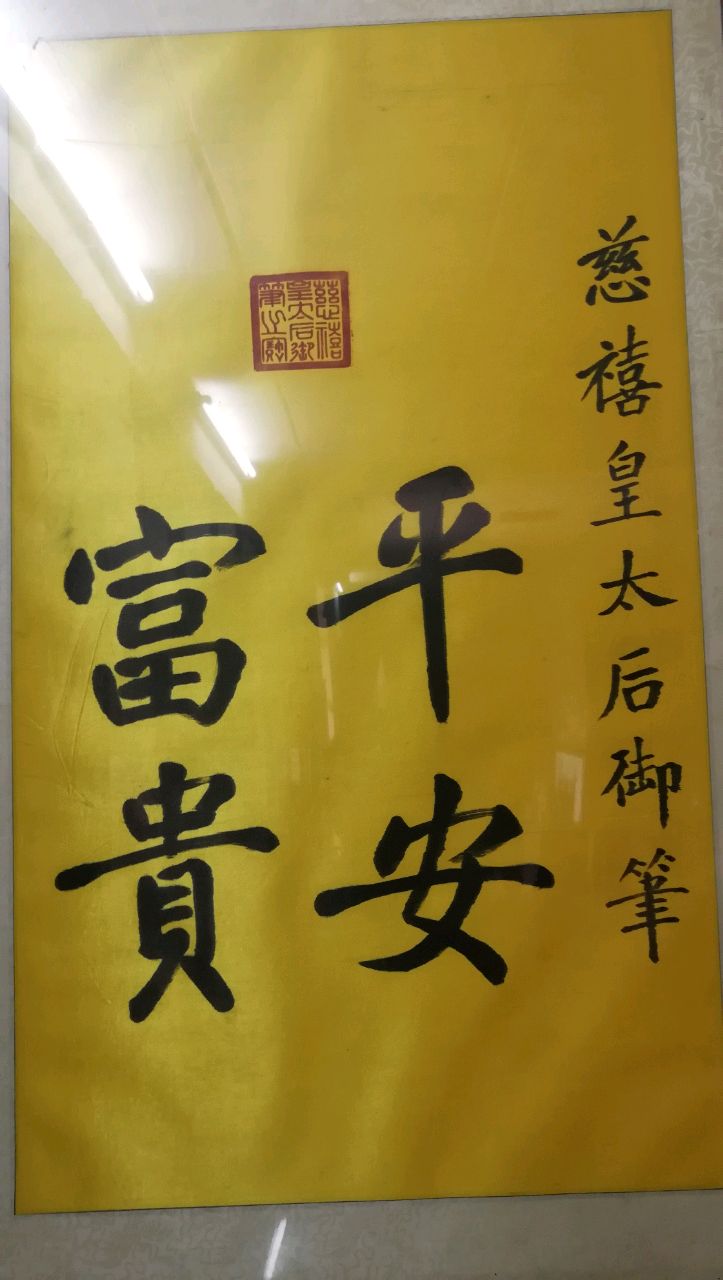 慈禧皇太后御筆
平安
富貴
慈禧
皇太后御
筆之寶